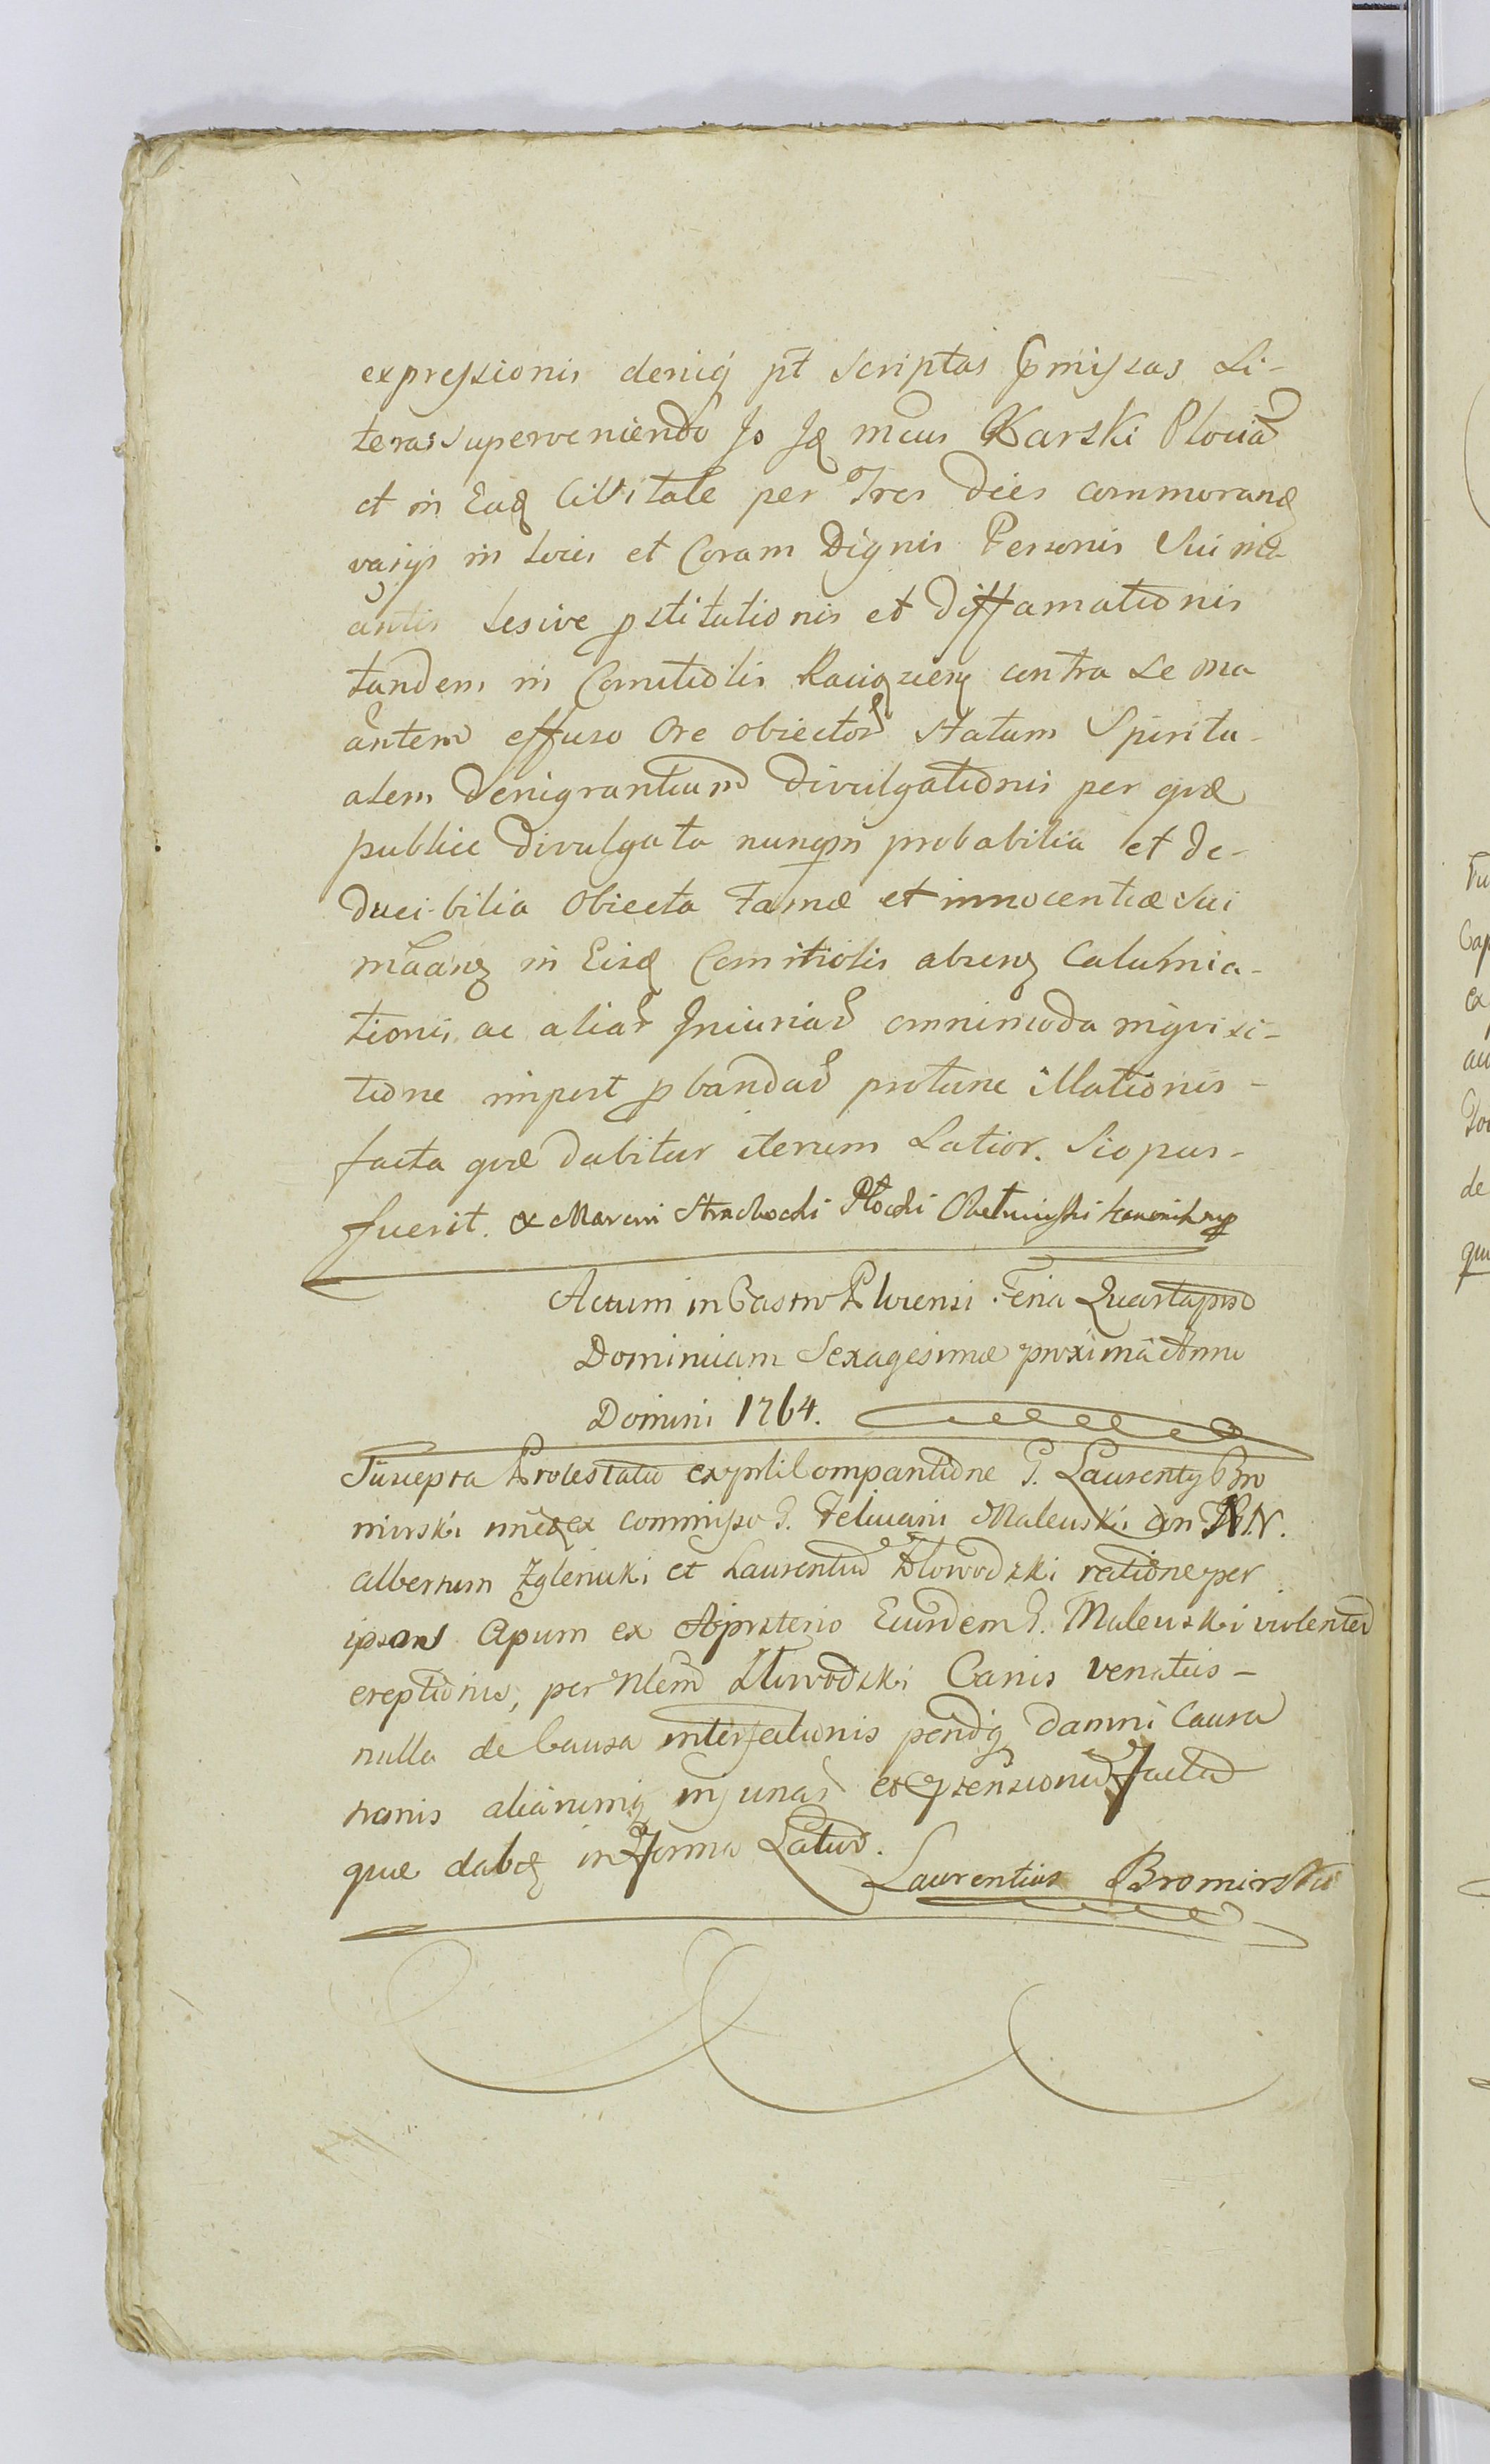 expressionis deniq pt scriptas pmissas Li-
teras superveniendo Jo Jd mcus Karski Plociā
et in Ead Civitate per Tres Dies commorand
varijs in locis et Coram Dignis Personis Sui ma-
antis Lesive pstitutionis et Diffamationis
tandem in Comitiolis Raciązien contra se ma
antem effuso Ore obiector Statum Spiritu-
alem Denigrantium Divulgationis per quæ
publice Divulgata nunqm probabilia et de-
duci-bilia Obiecta Famæ et innocentiæ Sui
maanz in Eisd Comitiolis absenz Calumnia-
tionis, ac aliar Injuriar omnimoda inqvisi-
tione impost pbandar protunc illationis-
facta quæ dabitur iterum Latior. Si opus-
fuerit.
Actum in Castro Plocensi Feria Quarta post
Dominicam Sexagesimæ proxima Anno
Domini 1764.
Suscepta Protestatio ex pntli Compantione G. Laurentij Bro
mirski ex commisso G. Feliciani Malewski in N.N.
Albertum Zglenicki et Laurentium Kłowodzki ratione per
ipsos Apum ex Apisterio Eiusdem G. Malewski violenter
ereptionis, per Nlem Kłowodzki Canis venatus-
nulla de Causa interfectionis pendq Damni Causa
tionis aliarumq injuriar et ptensionum facta
quæ dabt in Forma Latior.
Laurentius Bromirski